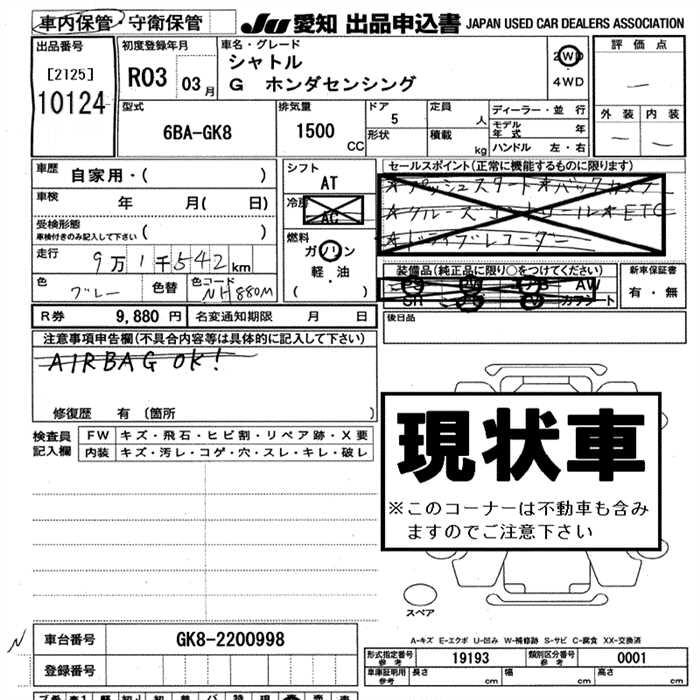 車内保管・守衛保管
JU 愛知 出品申込書 JAPAN USED CAR DEALERS ASSOCIATION
出品番号
[2125]
10124
初度登録年月
R03 03月
車名・グレード
シャトル
G ホンダセンシング
2WD
・
4WD
評価点
—
外装 内装
— —
型式
6BA-GK8
排気量
1500 CC
ドア
5
形状
定員
人
積載
kg
ディーラー・並行
モデル
年式 年
ハンドル 左・右
車歴
自家用・( )
車検
年 月( 日)
受検形態
車検付きのみ記入して下さい ( )
走行
9万1千542km
色
ブルー
色替
色コード
NH880M
シフト
AT
冷房
AC
燃料
ガソリン
軽・油
( )
セールスポイント(正常に機能するものに限ります)
*プッシュスタート*バックカメラ
*クルーズコントロール*ETC
*ドライブレコーダー
装備品(純正品に限り○をつけてください)
PS PW AB AW
SR カワ ナビ カラシート
新車保証書
有・無
R券 9,880 円
名変通知期限 月 日
後日品
注意事項申告欄(不具合内容等は具体的に記入して下さい)
AIRBAG OK!
修復歴 有 (箇所 )
検査員
記入欄
FW キズ・飛石・ヒビ割・リペア跡・X要
内装 キズ・汚レ・コゲ・穴・スレ・キレ・破レ
現状車
※このコーナーは不動車も含み
ますのでご注意下さい
スペア
A-キズ E-エクボ U-凹み W-補修跡 S-サビ C-腐食 XX-交換済
N
車台番号 GK8-2200998
登録番号
形式指定番号
参考
19193
類別区分番号
参考
0001
車庫証明用
参考
長さ cm 幅 cm 高さ cm